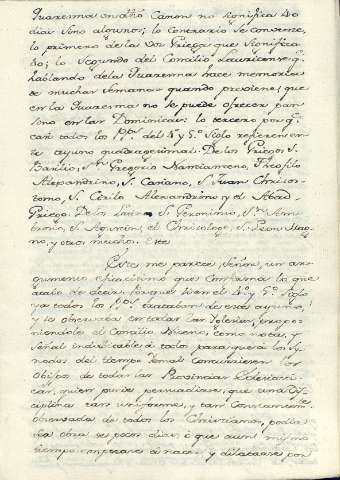 Quaresma en dho Canon no significa 40
dias sino algunos; lo contrario se convenze,
lo primero de la voz Griega que significa
40; lo segundo del Concilio Laodicense q.
hablando de la Quaresma hace memoria
de muchas semanas quando previene, que
en la Quaresma no se puede ofrecer pan
sino en las Dominicas: lo tercero por q.
casi todos los PP. del 4 y 5.º siglo refieren es-
te ayuno quadragesimal. De los Griegos, S.
Basilio, Sn. Gregorio Nazianzeno, Theofilo
Alexandrino, S. Casiano, S. Juan Chrisos-
tomo, S. Cirilo Alexandrino, y el Abad
Griego. De los Latinos S. Geronimo, Sn. Am-
brosio, S. Agustin, el Chrisologo, S. Leon Mag-
no, y otros muchos. Este
Este me parece, Señor, un ar-
gumento eficacisimo que confirma lo que
acabo de decir, porque si en el 4.º y 5.º siglo
ya todos los PP. trataban de este ayuno,
y lo observaban todas las Iglesias, supo-
niendole el Concilio Niceno, como nota y
señal indefectible á todos para que á los Sy-
nodos del tiempo Pascual concurriesen los
Obispos de todas las Provincias Eclesiasti-
cas, quien puede persuadirse, que una dis-
ciplina tan uniforme, y tan constantem.te
observada de todos los Christianos, podia
ser obra de pocos dias, ó que aun mismo
tiempo empezase á nacer, y dilatarse por